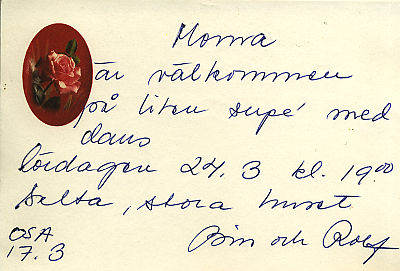 Momma
är välkommen
på liten supé med
dans
lördagen 24.3 kl. 19⁰⁰
Selta, stora huset
OSA
17.3
och Rolf